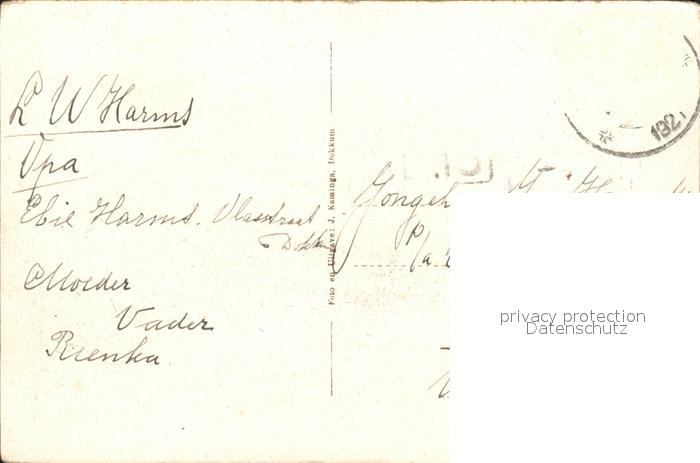 L W Harms
Opa
Ebie Harms. Vlasstraat
Dokkum
Moeder
Vader
Rienka
Foto en Uitgave: J. Kaminga, Dokkum
192
Jongeh
P/a
privacy protection
Datenschutz